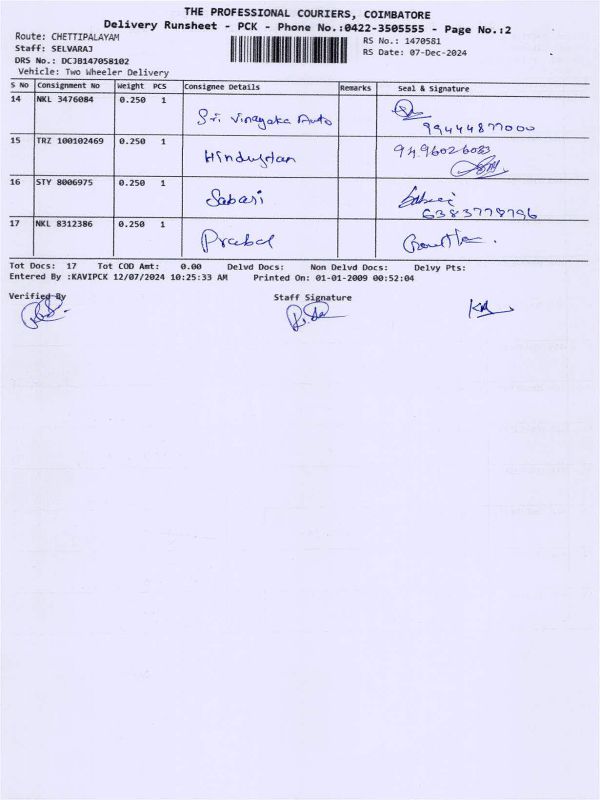 THE PROFESSIONAL COURIERS, COIMBATORE
Delivery Runsheet - PCK - Phone No.:0422-3505555 - Page No.:2
Route: CHETTIPALAYAM
RS No.: 1470581
Staff: SELVARAJ
RS Date: 07-Dec-2024
DRS No.: DCJB147058102
Vehicle: Two Wheeler Delivery
S No Consignment No Weight PCS Consignee Details Remarks Seal & Signature
14 NKL 3476084 0.250 1
Sri Vinayaka Auto
99444877000
15 TRZ 100102469 0.250 1
Hindustan
16 STY 8006975 0.250 1
Sabari
6383778796
17 NKL 8312386 0.250 1
Prabal
Tot Docs: 17 Tot COD Amt: 0.00 Delvd Docs: Non Delvd Docs: Delvy Pts:
Entered By :KAVIPCK 12/07/2024 10:25:33 AM Printed On: 01-01-2009 00:52:04
Verified By Staff Signature